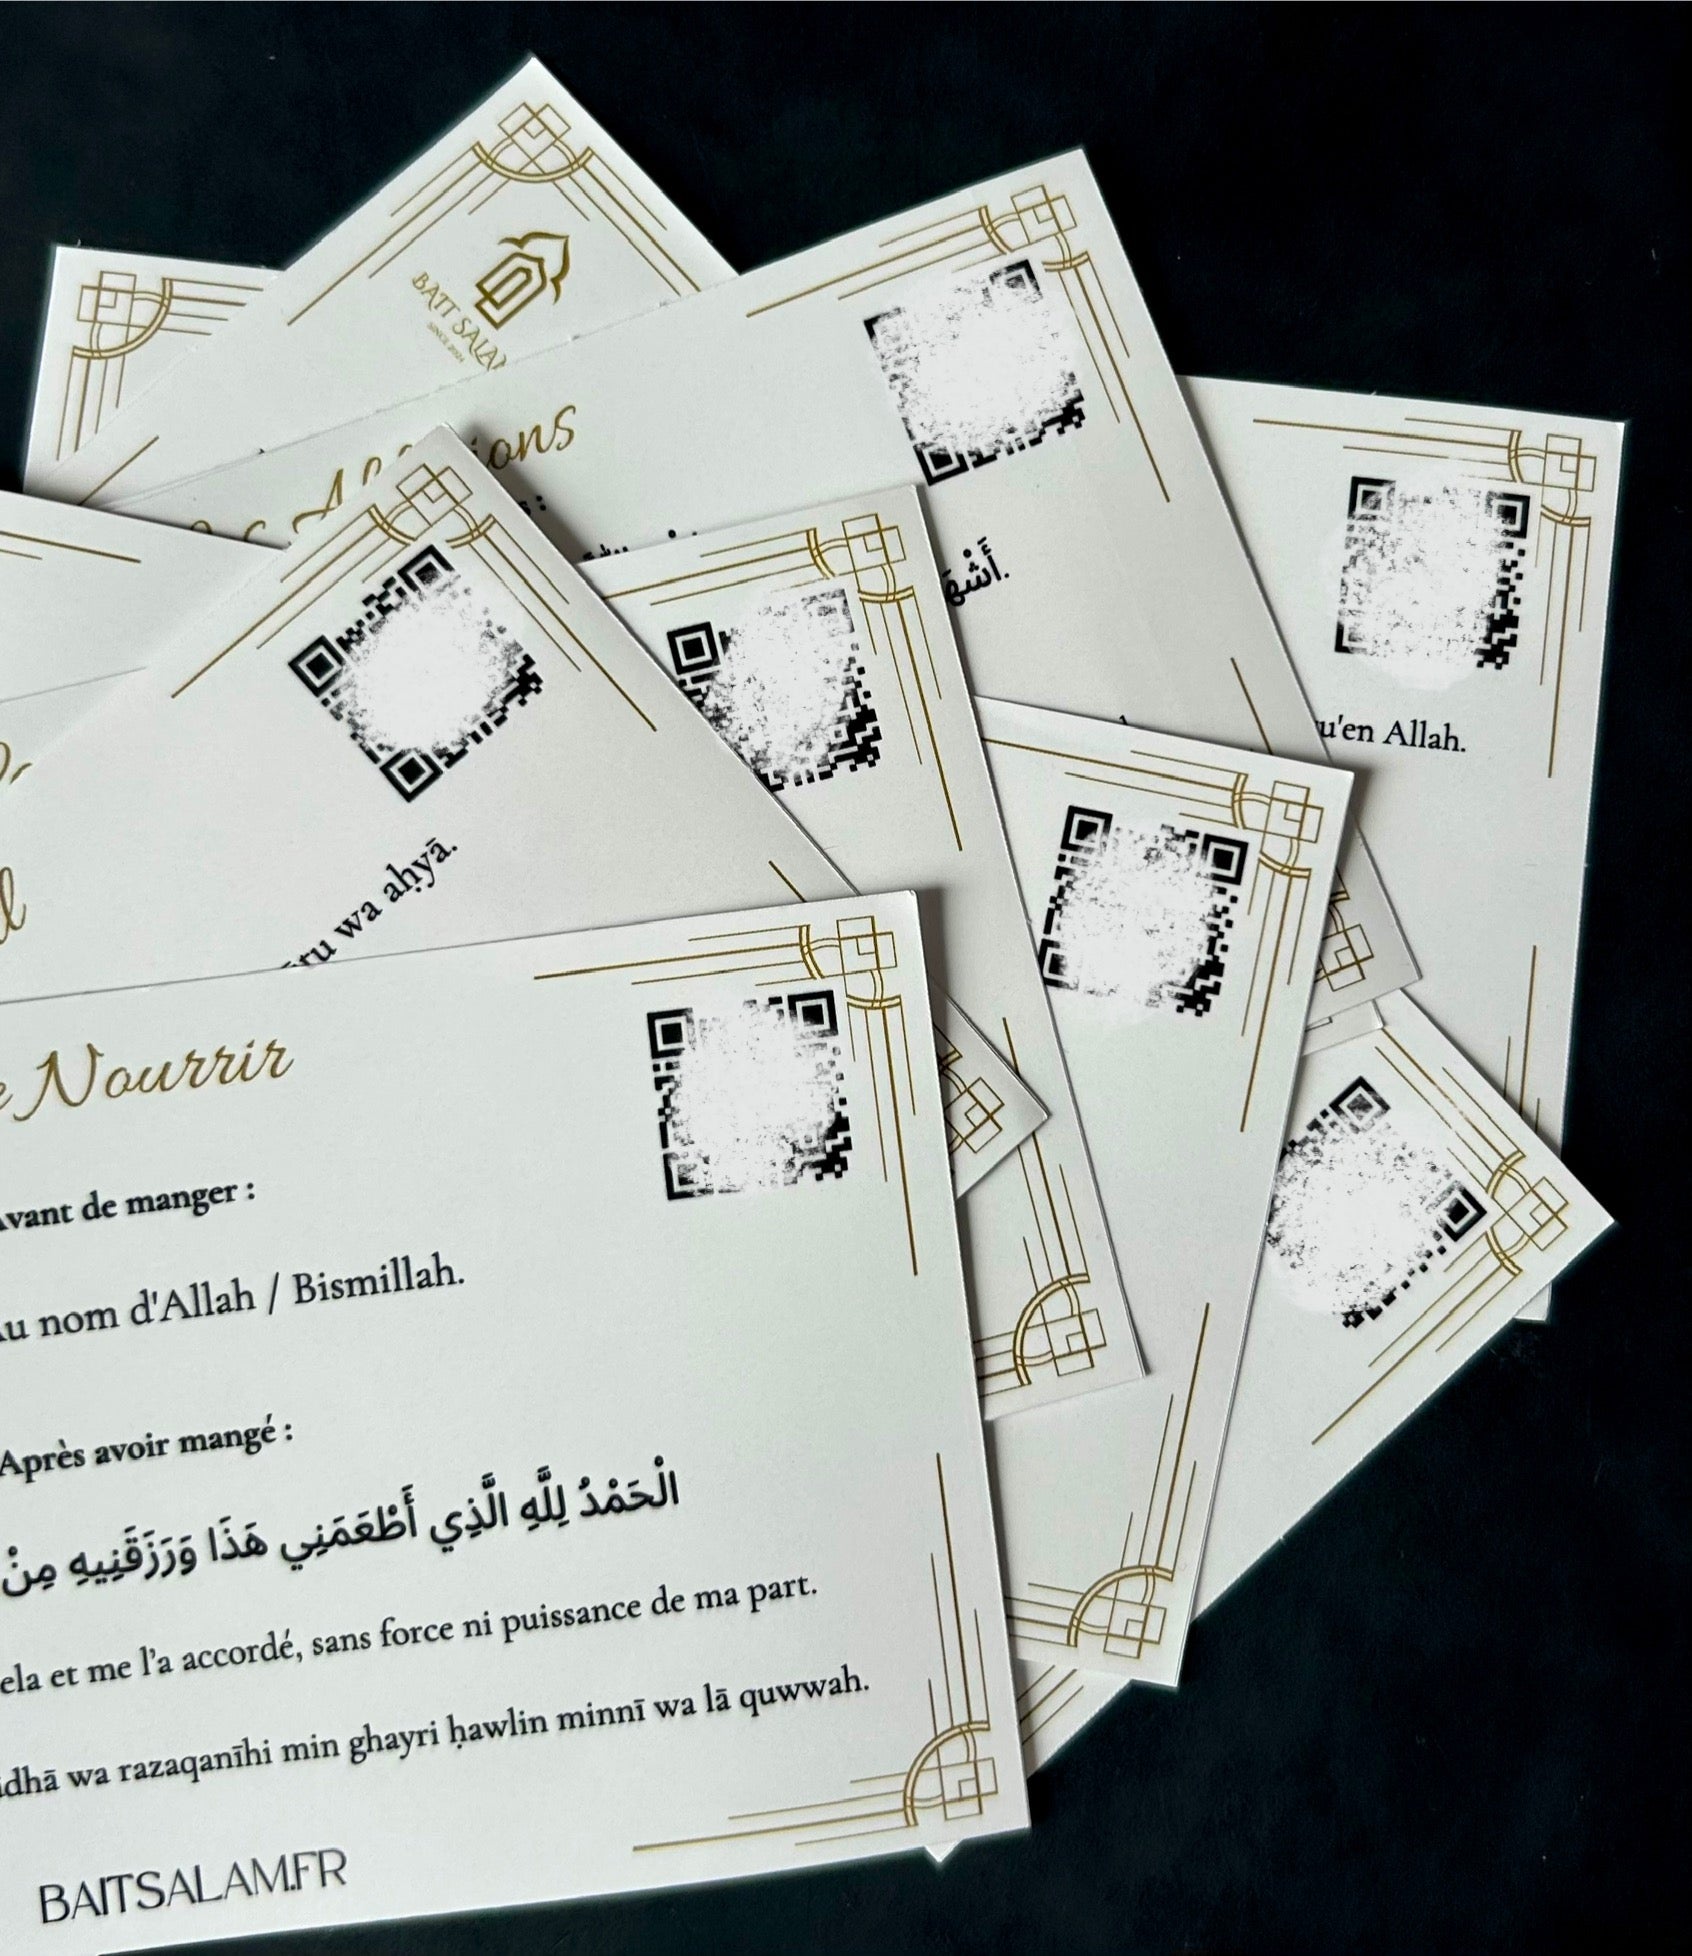 BAIT SALA
SINCE 2024
ions
أَشْهَ.
u'en Allah.
ru wa aḥyā.
e Nourrir
Avant de manger :
Au nom d'Allah / Bismillah.
Après avoir mangé :
الْحَمْدُ لِلَّهِ الَّذِي أَطْعَمَنِي هَذَا وَرَزَقَنِيهِ مِنْ
ela et me l’a accordé, sans force ni puissance de ma part.
idhā wa razaqanīhi min ghayri ḥawlin minnī wa lā quwwah.
BAITSALAM.FR